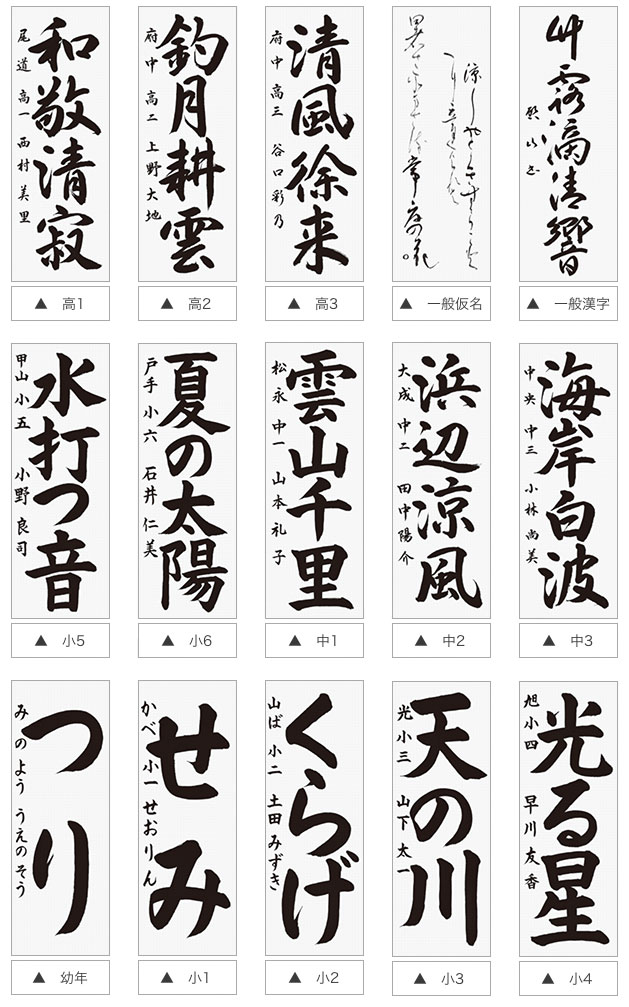 和敬清寂
尾道 高一 西村美里
▲ 高1
釣月耕雲
府中 高二 上野大地
▲ 高2
清風徐来
府中 高三 谷口彩乃
▲ 高3
涼し
▲ 一般仮名
艸露滴清響
▲ 一般漢字
水打つ音
甲山 小五 小野良司
▲ 小5
夏の太陽
戸手 小六 石井仁美
▲ 小6
雲山千里
松永 中一 山本礼子
▲ 中1
浜辺涼風
大成 中二 田中陽介
▲ 中2
海岸白波
中央 中三 小林尚美
▲ 中3
つり
みのよう うえのそう
▲ 幼年
せみ
かべ 小一 せおりん
▲ 小1
くらげ
山ば 小二 土田みずき
▲ 小2
天の川
光 小三 山下太一
▲ 小3
光る星
旭 小四 早川友香
▲ 小4